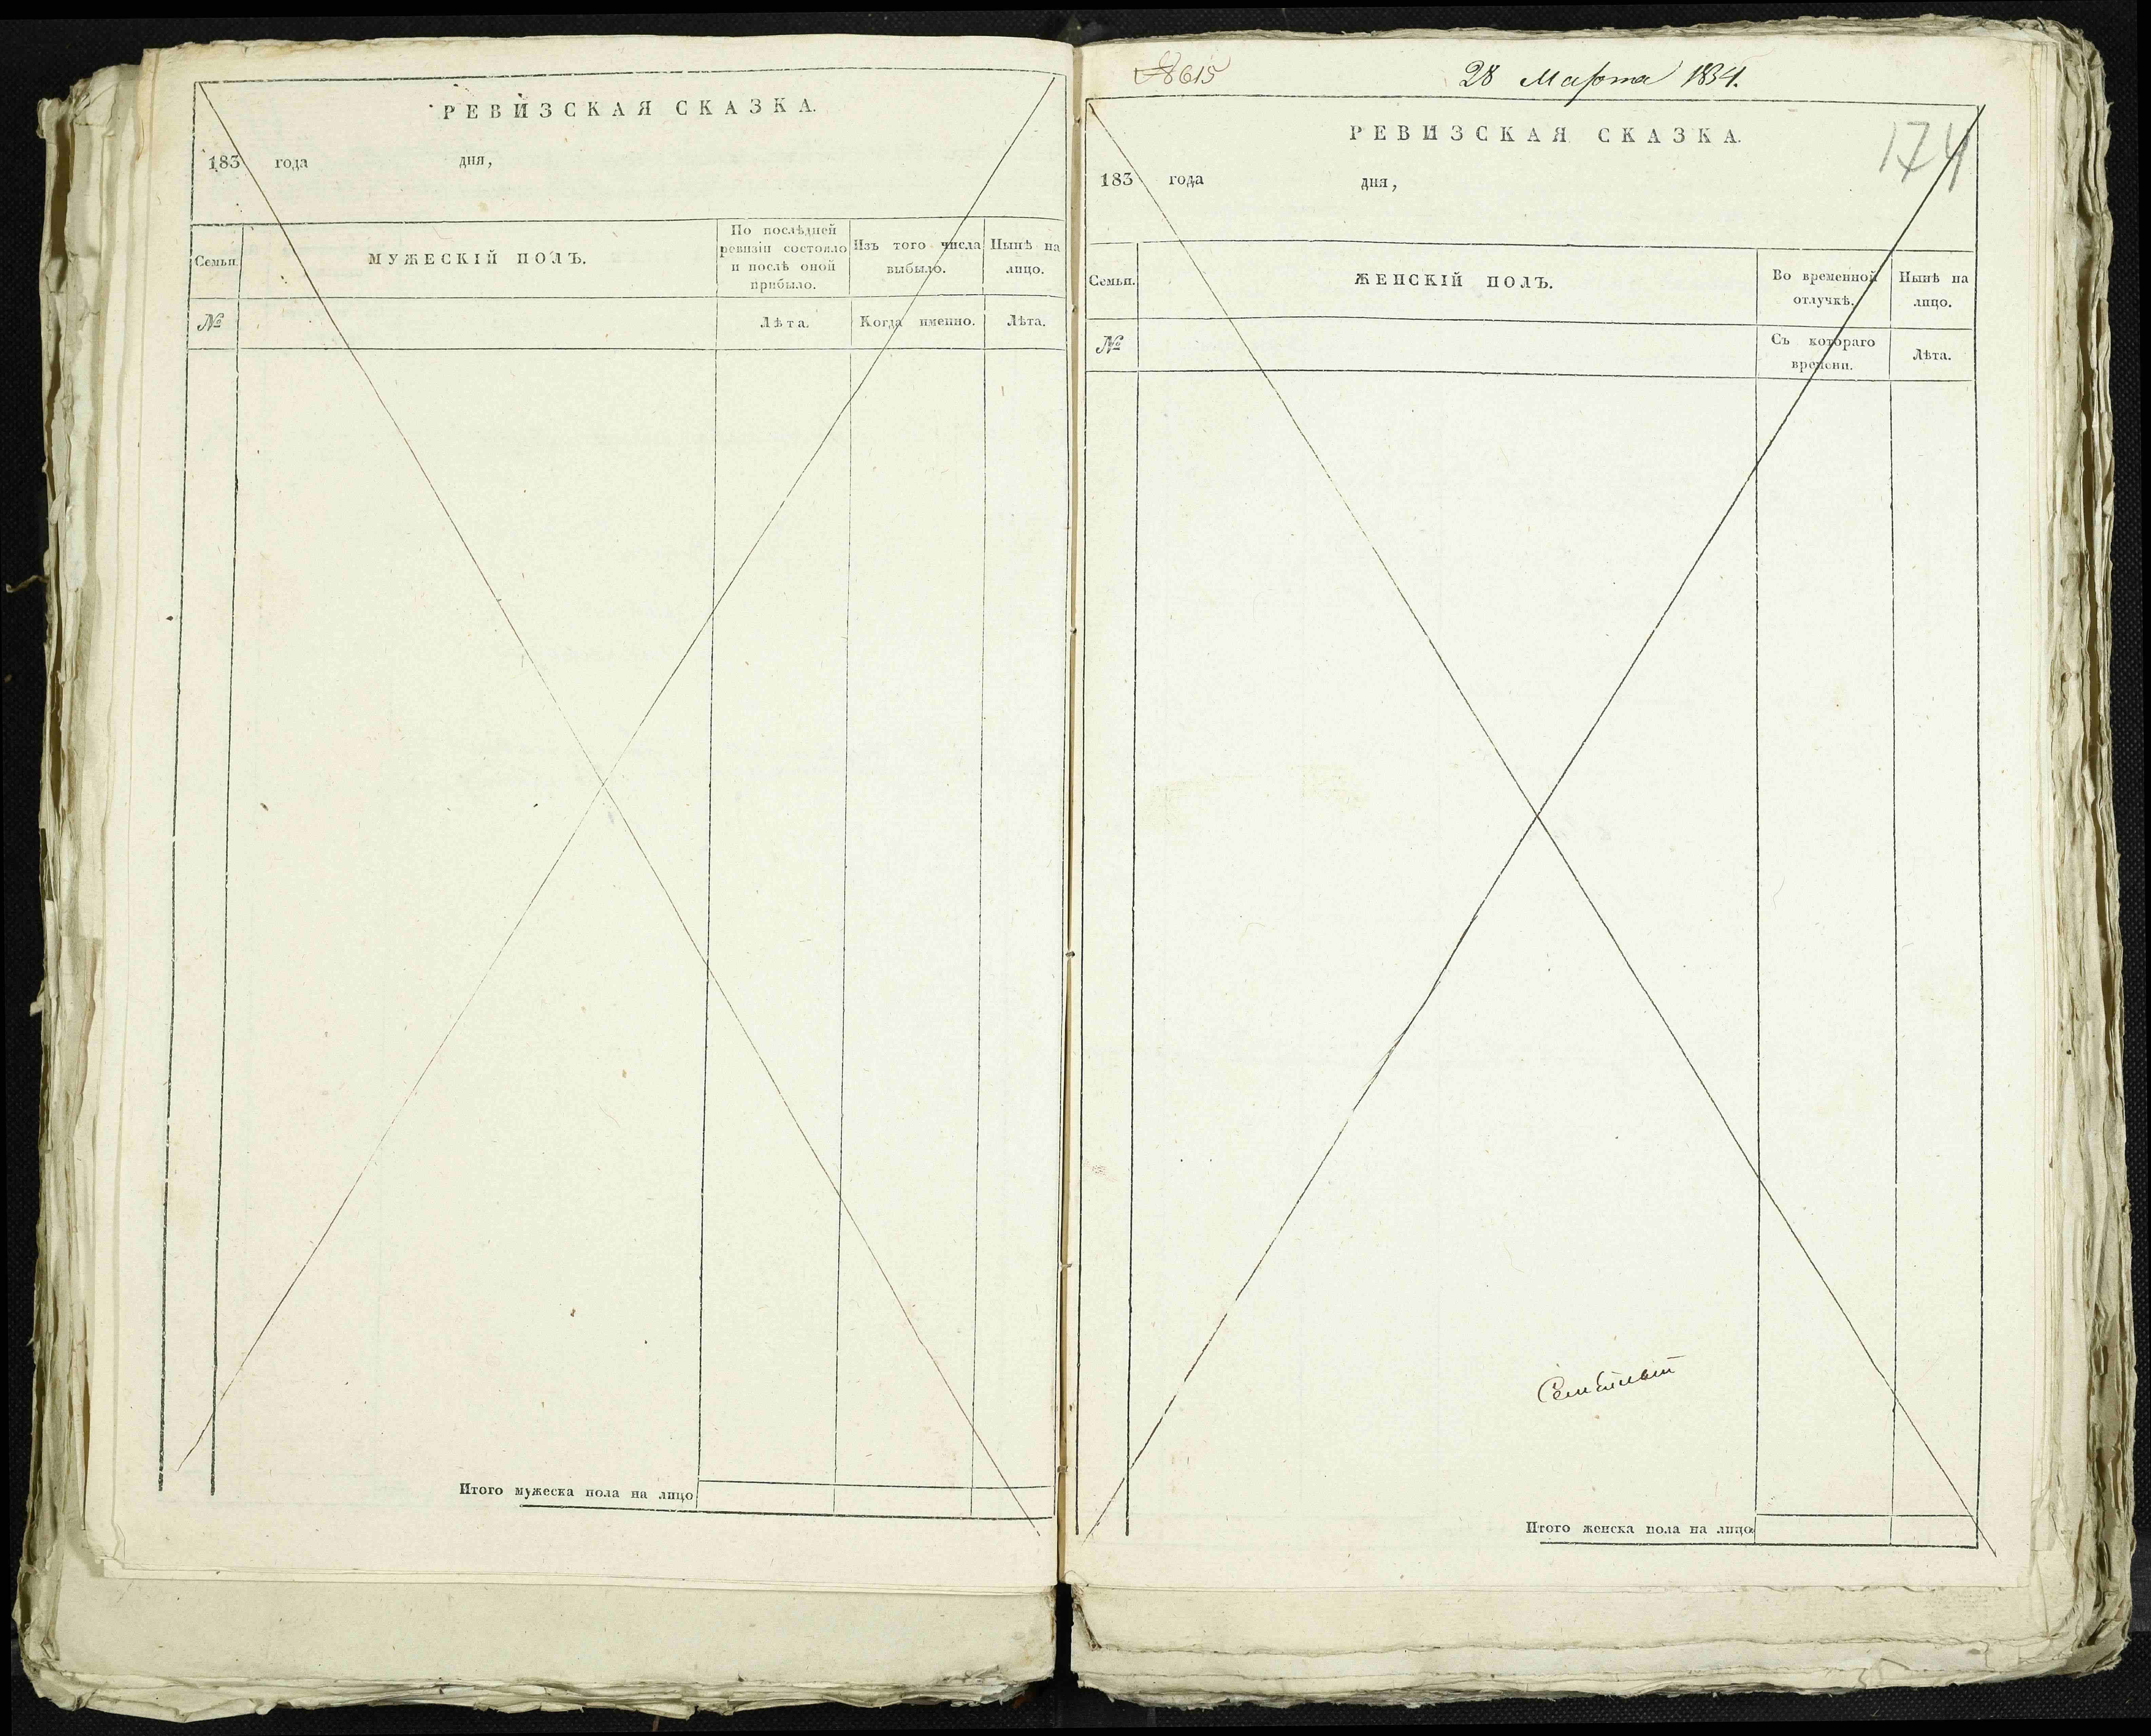 РЕВИЗСКАЯ СКАЗКА.
183 года дня,
Семьи.
МУЖЕСКІЙ ПОЛЪ.
По послѣдней
ревизіи состояло
и послѣ оной
прибыло.
Изъ того числа
выбыло.
Нынѣ на
лицо.
№
Лѣта.
Когда именно.
Лѣта.
Итого мужеска пола на лицо
8615
28 Марта 1834.
174
РЕВИЗСКАЯ СКАЗКА.
183 года дня,
Семьи.
ЖЕНСКІЙ ПОЛЪ.
Во временной
отлучкѣ.
Нынѣ на
лицо.
№
Съ котораго
времени.
Лѣта.
Итого женска пола на лицо